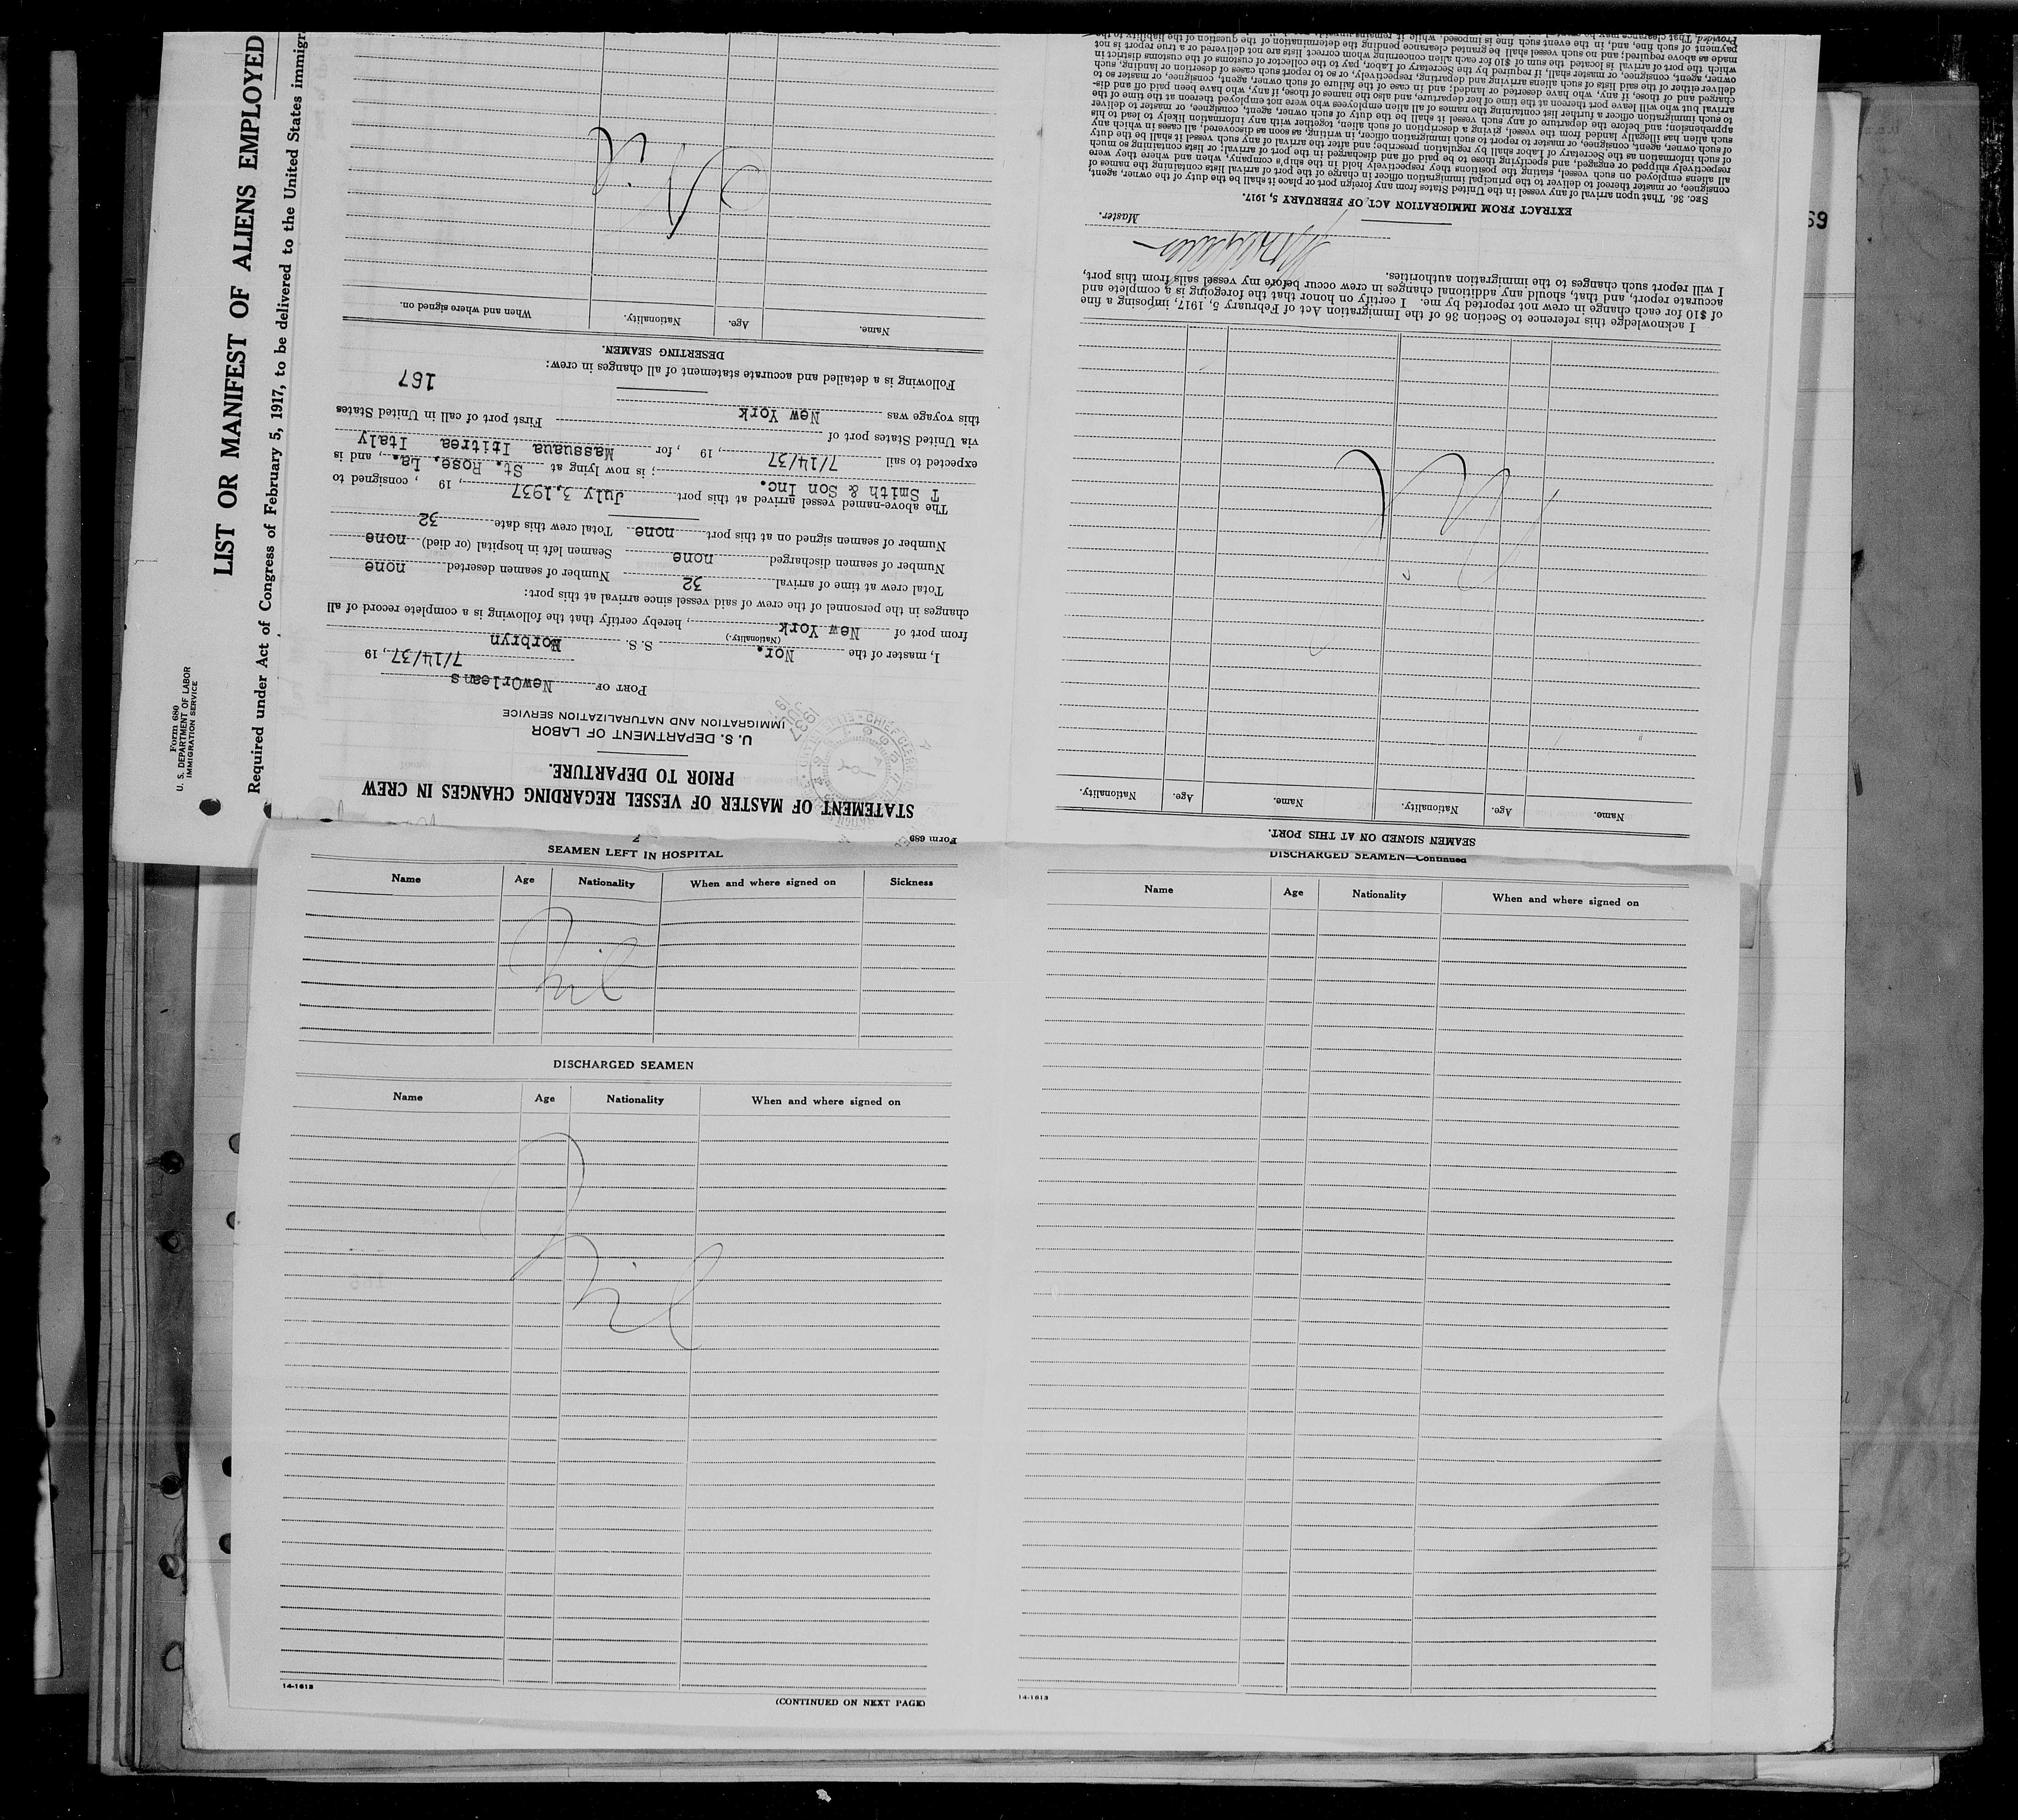 LIST OR MANIFEST OF ALIENS EMPLOYED
Required under Act of Congress of February 5, 1917, to be delivered to the United States immigr
Form 680
U. S. DEPARTMENT OF LABOR
IMMIGRATION SERVICE
Form 689
STATEMENT OF MASTER OF VESSEL REGARDING CHANGES IN CREW
PRIOR TO DEPARTURE.
U. S. DEPARTMENT OF LABOR
IMMIGRATION AND NATURALIZATION SERVICE
PORT OF NewOrleans
7/14/37, 19
I, master of the Nor. S. S. Morbryn
(Nationality.)
from port of New York, hereby certify that the following is a complete record of all
changes in the personnel of the crew of said vessel since arrival at this port:
Total crew at time of arrival 32 Number of seamen deserted none
Number of seamen discharged none Seamen left in hospital (or died) none
Number of seamen signed on at this port none Total crew this date 32
The above-named vessel arrived at this port July 3,1937, 19 , consigned to
T Smith & Son Inc.; is now lying at St. Rose, La., and is
expected to sail 7/14/37, 19 , for Massuaua Iritrea Italy
via United States port of First port of call in United States
this voyage was New York
167
Following is a detailed and accurate statement of all changes in crew:
DESERTING SEAMEN.
Name. Age. Nationality. When and where signed on.
Nil
SEAMEN SIGNED ON AT THIS PORT.
Name. Age. Nationality. Name. Age. Nationality.
I acknowledge this reference to Section 36 of the Immigration Act of February 5, 1917, imposing a fine
of $10 for each change in crew not reported by me. I certify on honor that the foregoing is a complete and
accurate report, and that, should any additional changes in crew occur before my vessel sails from this port,
I will report such changes to the immigration authorities.
Master.
EXTRACT FROM IMMIGRATION ACT OF FEBRUARY 5, 1917.
SEC. 36. That upon arrival of any vessel in the United States from any foreign port or place it shall be the duty of the owner, agent,
consignee, or master thereof to deliver to the principal immigration officer in charge of the port of arrival lists containing the names of
all aliens employed on such vessel, stating the positions they respectively hold in the ship's company, when and where they were
respectively shipped or engaged, and specifying those to be paid off and discharged in the port of arrival; or lists containing so much
of such information as the Secretary of Labor shall by regulation prescribe; and after the arrival of any such vessel it shall be the duty
of such owner, agent, consignee, or master to report to such immigration officer, in writing, as soon as discovered, all cases in which any
such alien has illegally landed from the vessel, giving a description of such alien, together with any information likely to lead to his
apprehension; and before the departure of any such vessel it shall be the duty of such owner, agent, consignee, or master to deliver
to such immigration officer a further list containing the names of all alien employees who were not employed thereon at the time of the
arrival but who will leave port thereon at the time of her departure, and also the names of those, if any, who have been paid off and dis-
charged and of those, if any, who have deserted or landed; and in case of the failure of such owner, agent, consignee, or master so to
deliver either of the said lists of such aliens arriving and departing, respectively, or so to report such cases of desertion or landing, such
owner, agent, consignee, or master shall, if required by the Secretary of Labor, pay to the collector of customs of the customs district in
which the port of arrival is located the sum of $10 for each alien concerning whom correct lists are not delivered or a true report is not
made as above required; and no such vessel shall be granted clearance pending the determination of the question of the liability to the
payment of such fine, and, in the event such fine is imposed, while it remains
Provided, That clearance may be
SEAMEN LEFT IN HOSPITAL
Name Age Nationality When and where signed on Sickness
Nil
DISCHARGED SEAMEN
Name Age Nationality When and where signed on
Nil
14-1613
(CONTINUED ON NEXT PAGE)
DISCHARGED SEAMEN—Continued
Name Age Nationality When and where signed on
14-1613
69